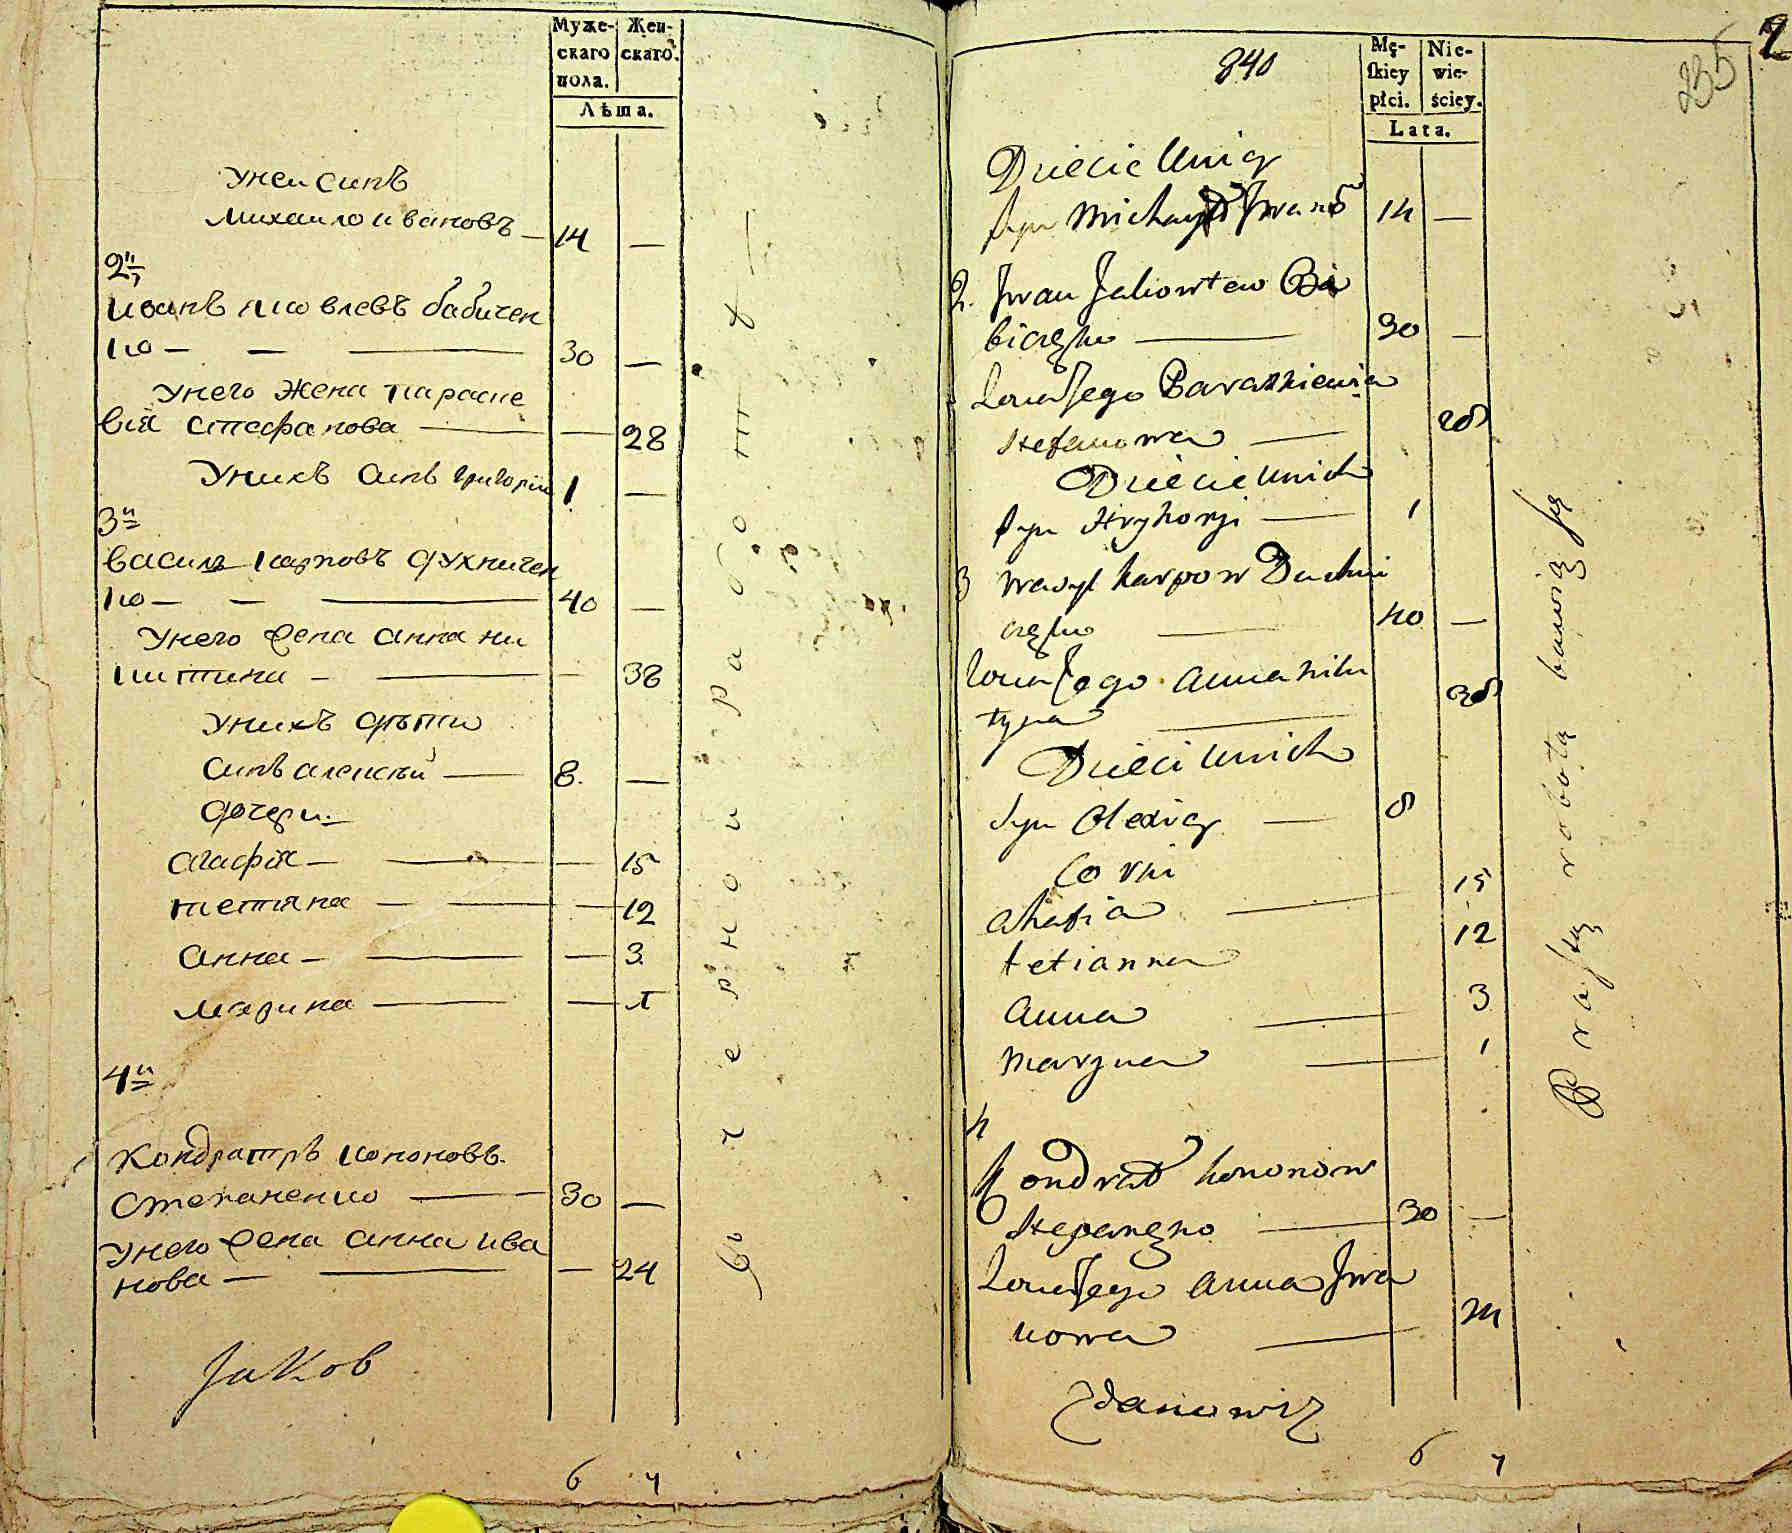 Муже-
скаго
пола.
Жен-
скаго.
Лѣта.
У неи синъ
Михаило ивановъ — 14 —
2й
иванъ яковлевъ бабичен
ко — — — 30 —
У него жена параске
вія стефанова — — 28
У нихъ синъ григорій 1 —
3й
василь карповъ духничен
ко — — — 40 —
У него жена анна ни
китина — — — 38
У нихъ дѣти
синъ алексѣй — 8. —
дочери.
агафія — — — 15
тетяна — — — 12
анна — — — 3
марина — — 1
4й
Кондратъ кононовъ.
степаненко — 30 —
У него жена анна ива
нова — — — 24
Jakob
6 4
в черной работѣ
840
235
2
Mę-
skiey
płci.
Nie-
wie-
ściey.
Lata.
Dziecie Uniey
syn Michayło Jwanow 14 —
2. Jwan Jakowlew Ba
biczęko — 30 —
Zona Jego Paraskiewia
Stefanowa — 28
Dziecie Unich
syn Hryhoryi — 1
3 Wasyl karpow Duchni
częko — 40 —
Zona Jego Anna niki
tyna — 38
Dzieci Unich
syn Olexiey — 8
Corki
Ahafia — 15
tetianna 12
Anna — 3
Maryna — 1
4
Kondrat kononow
Stepanęko — 30 —
Zona Jego Anna Jwa
nowa — 24
Zdanowicz
6 4
Prostą robotą bawią się